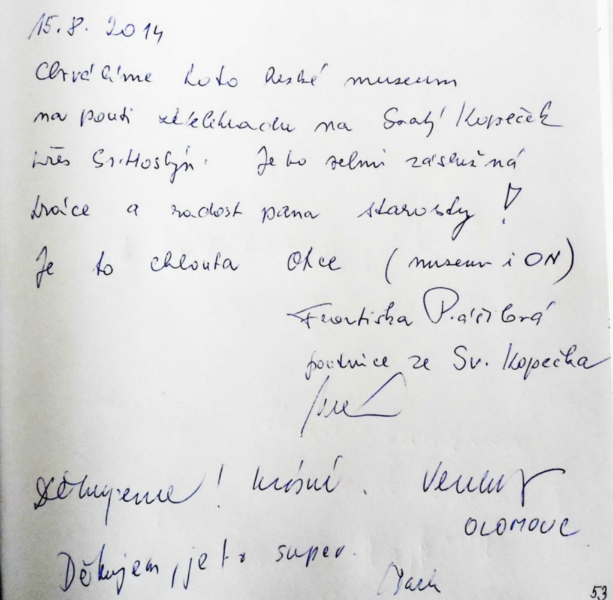 15.8.2014
Chválíme toto české museum
na pouti z Velehradu na Svatý Kopeček
přes Sv. Hostýn. Je to velmi záslužná
práce a radost pana starosty!
Je to chlouba Obce (museum i ON)
Františka
poutnice ze Sv. Kopečka
Děkujeme! krásné.
OLOMOUC
Děkujem, je to super.
53